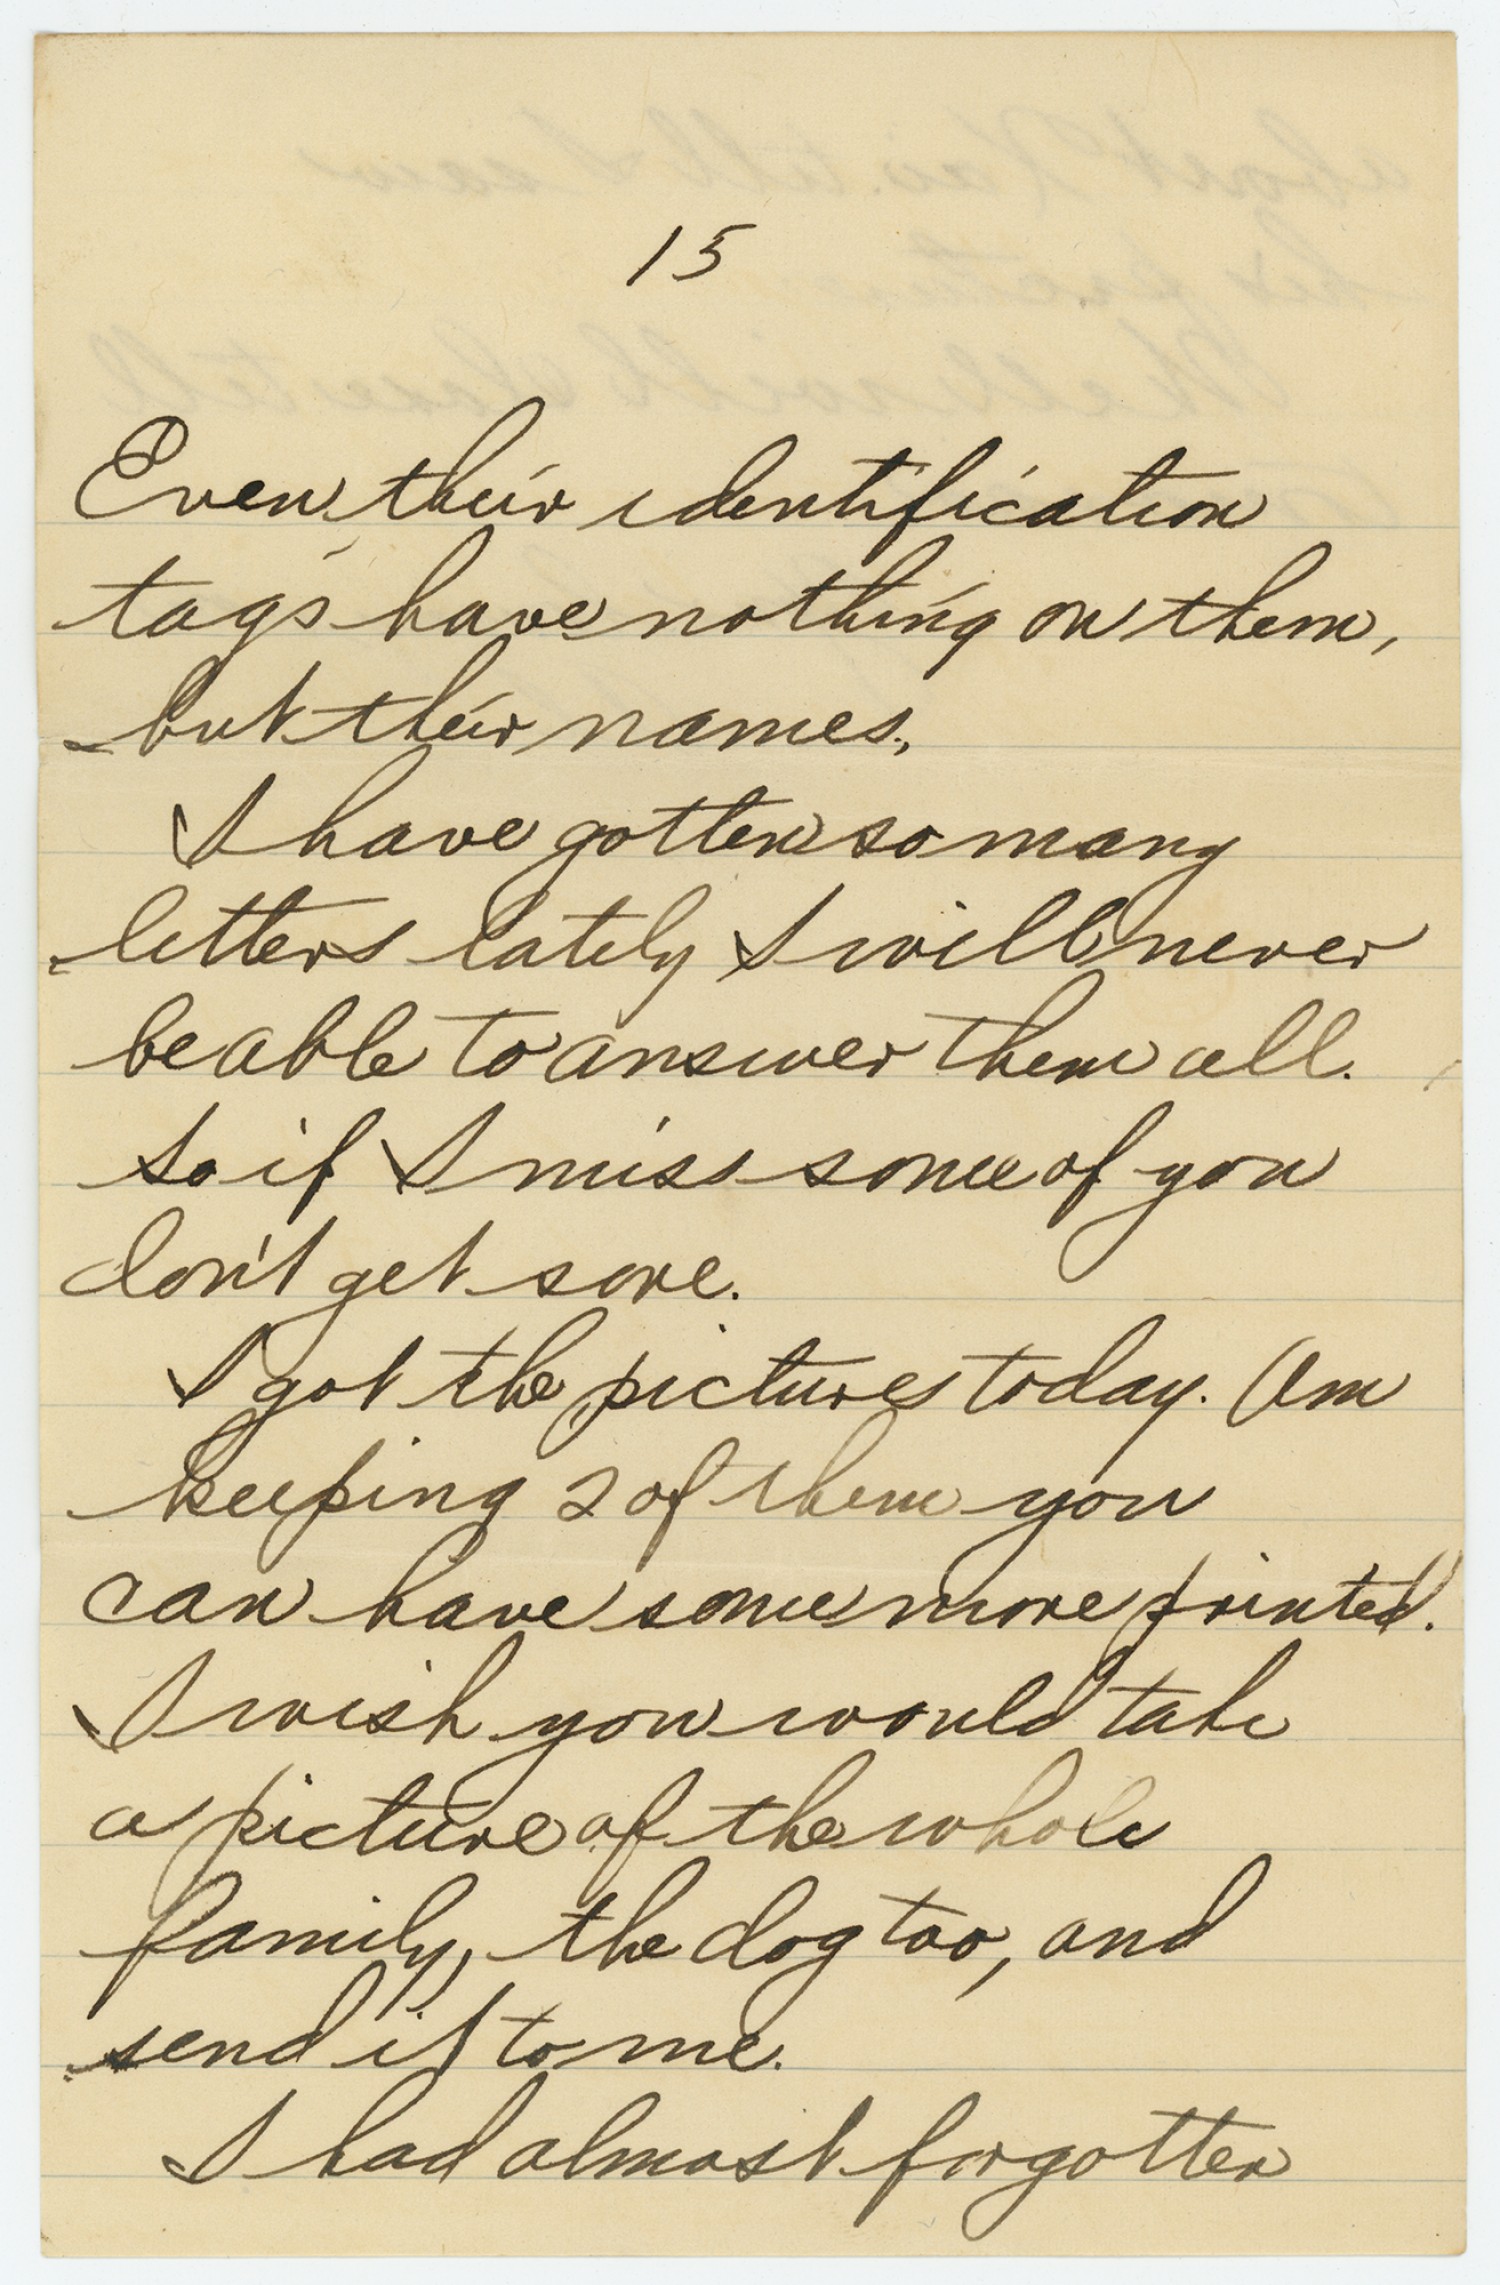 15
Even their identification
tags have nothing on them,
but their names.
I have gotten so many
letters lately I will never
be able to answer them all.
So if I miss some of you
don't get sore.
I got the pictures today. Am
keeping 2 of them you
can have some more printed.
I wish you would take
a picture of the whole
family, the dog too, and
send it to me.
I had almost forgotten